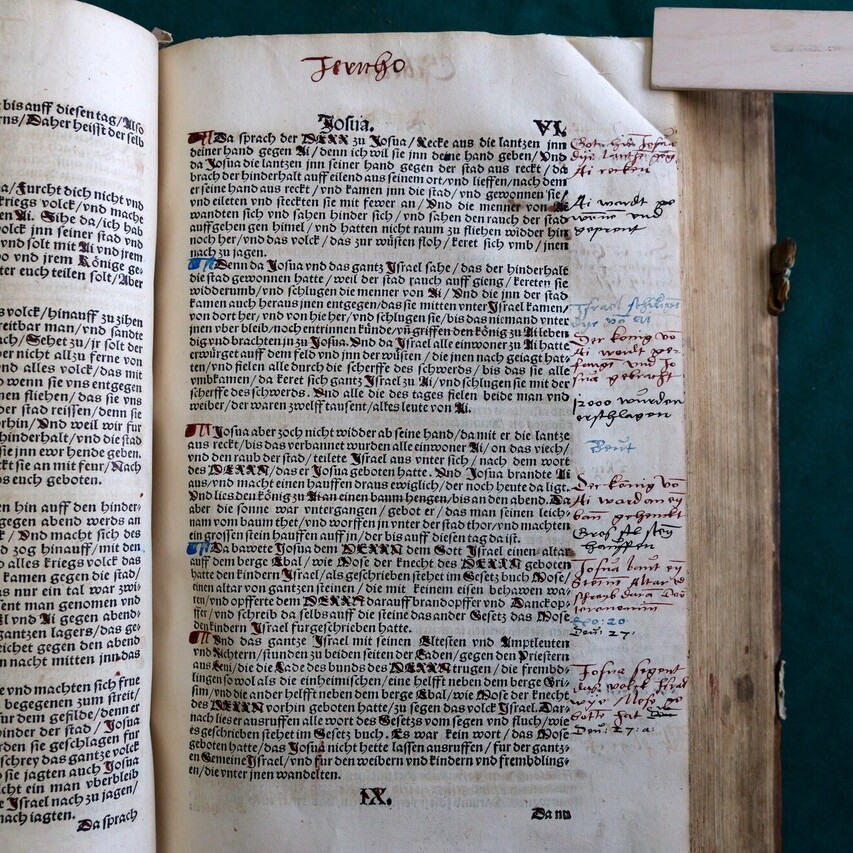 bis auff diesen tag/Also
Daher heisst der selb
Furcht dich nicht vnd
kriegs volck/vnd macht
Ai. Sihe da/ich hab
volck jnn seiner stad vnd
vnd solt mit Ai vnd jrem
vnd jrem Könige ge-
euch teilen solt/Aber
volck/hinauff zu zihen
man/vnd sandte
Sehet zu/jr solt der
nicht allzu ferne von
alles volck/das mit
wenn sie vns entgegen
fliehen/das sie vns
der stad reissen/denn sie
Vnd weil wir fur
hinderhalt/vnd die stad
sie jnn ewr hende geben.
sie an mit feur/Nach
euch geboten.
hin auff den hinder-
gegen abend werds an
Vnd macht sich des
zog hinauff/mit den
alles kriegs volck das
kamen gegen die stad/
nur ein tal war zwi-
man genomen vnd
vnd Ai gegen abend-
gantzen lagers/das ge-
gegen den abend
nacht mitten jnn das
vnd machten sich frue
begegenen zum streit/
fur dem gefilde/denn er
hinder der stad/Josua
sie geschlagen fur
das gantze volck
sie jagten auch Josua
ein man vberbleib
Israel nach zu jagen/
nach jagten.
Da sprach
Jericho
Josua. VI.
Da sprach der HERR zu Josua/Recke aus die lantzen jnn
deiner hand gegen Ai/denn ich wil sie jnn deine hand geben/Vnd
da Josua die lantzen jnn seiner hand gegen der stad aus reckt/da
brach der hinderhalt auff eilend aus seinem ort/vnd lieffen/nach dem
er seine hand aus reckt/vnd kamen jnn die stad/vnd gewonnen sie/
vnd eileten vnd steckten sie mit fewer an/Vnd die menner von Ai
wandten sich vnd sahen hinder sich/vnd sahen den rauch der stad
auffgehen gen himel/vnd hatten nicht raum zu fliehen widder hin
noch her/vnd das volck/das zur wüsten floh/keret sich vmb/jnen
nach zu jagen.
Denn da Josua vnd das gantz Israel sahe/das der hinderhalt
die stad gewonnen hatte/weil der stad rauch auff gieng/kereten sie
widderumb/vnd schlugen die menner von Ai/Vnd die jnn der stad
kamen auch heraus jnen entgegen/das sie mitten vnter Israel kamen
von dort her/vnd von hie her/vnd schlugen sie/bis das niemand vnter
jnen vber bleib/noch entrinnen künde/vñ griffen den könig zu Ai leben
dig vnd brachten jn zu Josua. Vnd da Israel alle einwoner zu Ai hatte
erwürget auff dem feld vnd jnn der wüsten/die jnen nach geiagt hat-
ten/vnd fielen alle durch die scherffe des schwerds/bis das sie alle
vmbkamen/da keret sich gantz Israel zu Ai/vnd schlugen sie mit der
scherffe des schwerds. Vnd alle die des tages fielen beide man vnd
weiber/der waren zwelff tausent/alles leute von Ai.
Josua aber zoch nicht widder ab seine hand/da mit er die lantze
aus reckt/bis das verbannet wurden alle einwoner Ai/on das viech/
vnd den raub der stad/teilete Israel aus vnter sich/nach dem wort
des HERRN/das er Josua geboten hatte. Vnd Josua brandte Ai
aus/vnd macht einen hauffen draus ewiglich/der noch heute da ligt.
Vnd lies den König zu Ai an einen baum hengen/bis an den abend. Da
aber die sonne war vntergangen/gebot er/das man seinen leich-
nam vom baum thet/vnd worffen jn vnter der stad thor/vnd machten
ein grossen stein hauff auff jn/der bis auff diesen tag da ist.
Da bawete Josua dem HERRN dem Gott Israel einen altar
auff dem berge Ebal/wie Mose der knecht des HERRN geboten
hatte den kindern Israel/als geschrieben stehet im Gesetz buch Mose/
einen altar von gantzen steinen/die mit keinem eisen behawen wa-
ren/vnd opfferte dem HERRN darauff brandopffer vnd Danckop-
ffer/vnd schreib da selbs auff die steine das ander Gesetz das Mose
den kindern Israel furgeschrieben hatte.
Vnd das gantze Israel mit seinen Eltesten vnd Amptleuten
vnd Richtern/stunden zu beiden seiten der Laden/gegen den Priestern
aus Leui/die die Lade des bunds des HERRN trugen/die frembd-
lingen so wol als die einheimischen/eine helfft neben dem berge Gri-
sim/vnd die ander helfft neben dem berge Ebal/wie Mose der knecht
des HERRN vorhin geboten hatte/zu segen das volck Israel. Dar-
nach lies er ausruffen alle wort des Gesetzs vom segen vnd fluch/wie
es geschrieben stehet im Gesetz buch. Es war kein wort/das Mose
geboten hatte/das Josua nicht hette lassen ausruffen/fur der gantz-
en Gemeine Israel/vnd fur den weibern vnd kindern vnd frembdling-
en/die vnter jnen wandelten.
IX.
Da nu
Ai recken
Ai wardt ge
vnd
Der konig vo
Ai wardt ge-
vnd Jo
sua
12000 wurden
erschlagen
Beut
Der konig vo
Ai ward an ey
gehenckt
Gros stey
hauffen
Josua baut ey
Altar
Deu: 27.
Josua segent
das volck Israel
wye Mose ge
botte hat
Deu: 27: